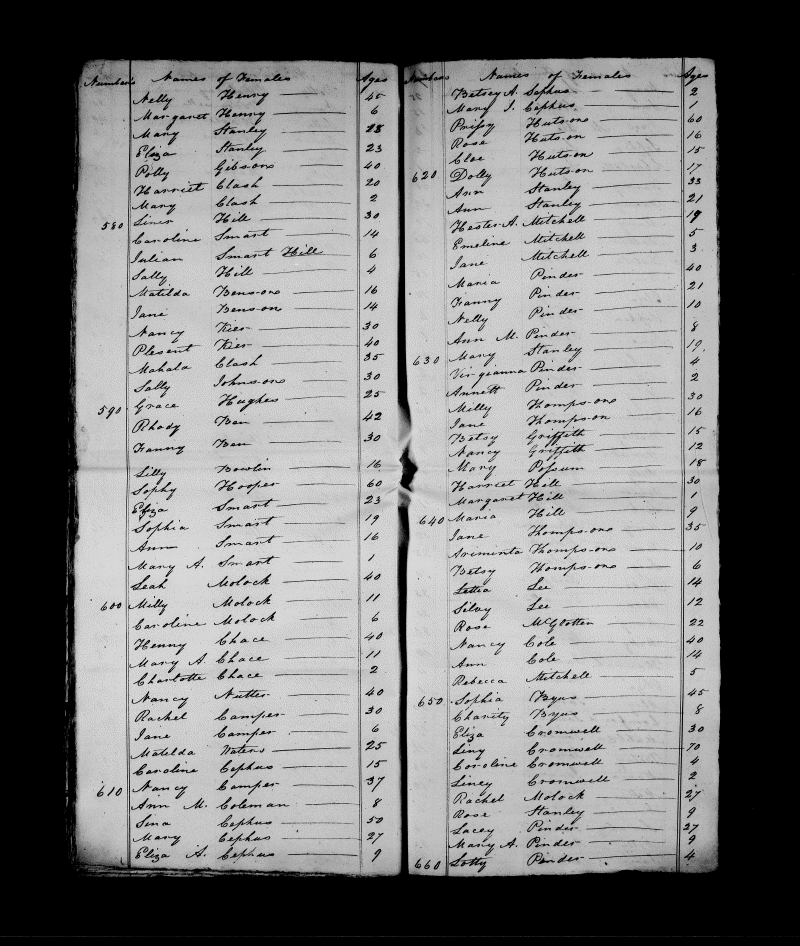 Numbers Names of Females Ages
Nelly Henry 45
Margaret Henry 6
Mary Stanley 28
Eliza Stanley 23
Polly Gibsons 40
Harriet Clash 20
Mary Clash 2
580 Liner Hill 30
Caroline Smart 14
Julian Smart Hill 6
Sally Hill 4
Matilda Benson 16
Jane Benson 14
Nancy Kier 30
Plesent Kier 40
Mahala Clash 35
Sally Johnson 30
590 Grace Hughes 25
Rhody Ben 42
Fanny Ben 30
Lilly Bowlin 16
Sophy Hooper 60
Eliza Smart 23
Sophia Smart 19
Ann Smart 16
Mary A. Smart 1
Leah Molock 40
600 Milly Molock 11
Caroline Molock 6
Henny Chace 40
Mary A. Chace 11
Charlotte Chace 2
Nancy Nutter 40
Rachel Camper 30
Jane Camper 6
Matilda Waters 25
Caroline Cephus 15
610 Nancy Camper 37
Ann M. Coleman 8
Sina Cephus 50
Mary Cephus 27
Eliza A. Cephus 9
Numbers Names of Females Ages
Betsey A. Sephus 2
Mary J. Cephus 1
Prissy Hutson 60
Rose Hutson 16
Cloe Hutson 15
620 Dolly Hutson 17
Ann Stanley 33
Ann Stanley 21
Hester A. Mitchell 19
Emeline Mitchell 5
Jane Mitchell 3
Maria Pinder 40
Fanny Pinder 21
Nelly Pinder 10
Ann M. Pinder 8
630 Mary Stanley 19
Virgianna Pinder 4
Annett Pinder 2
Milly Thompson 30
Jane Thompson 16
Betsy Griffith 15
Nancy Griffith 12
Mary Possum 18
Harriet Hill 30
Margaret Hill 1
640 Maria Hill 9
Jane Thompson 35
Ariminta Thompson 10
Betsy Thompson 6
Lettia Lee 14
Silvy Lee 12
Rose McGlotten 22
Nancy Cole 40
Ann Cole 14
Rebecca Mitchell 5
650 Sophia Byus 45
Charity Byus 8
Eliza Cromwell 30
Liny Cromwell 70
Coroline Cromwell 4
Liney Cromwell 2
Rachel Molock 27
Rose Stanley 9
Lacey Pinder 27
Mary A. Pinder 9
660 Lotty Pinder 4